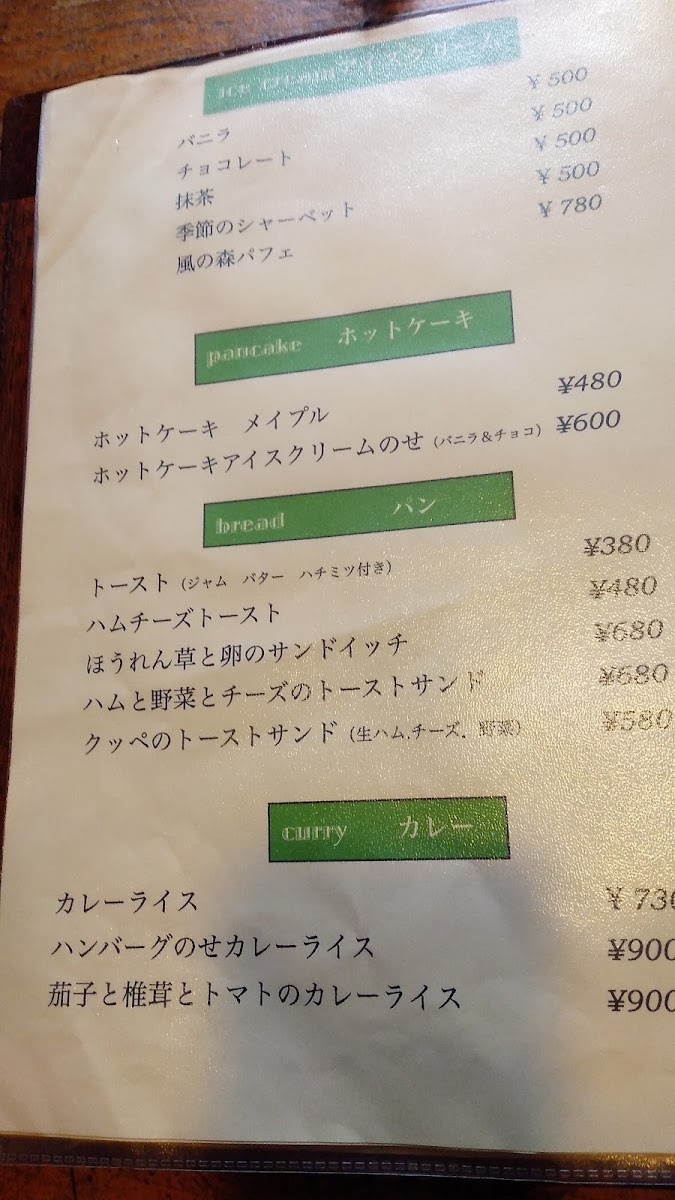 Ice Cream アイスクリーム
バニラ ¥500
チョコレート ¥500
抹茶 ¥500
季節のシャーベット ¥500
風の森パフェ ¥780
pancake ホットケーキ
ホットケーキ メイプル ¥480
ホットケーキアイスクリームのせ (バニラ&チョコ) ¥600
bread パン
トースト (ジャム バター ハチミツ付き) ¥380
ハムチーズトースト ¥480
ほうれん草と卵のサンドイッチ ¥680
ハムと野菜とチーズのトーストサンド ¥680
クッペのトーストサンド (生ハム.チーズ. 野菜) ¥580
curry カレー
カレーライス ¥730
ハンバーグのせカレーライス ¥900
茄子と椎茸とトマトのカレーライス ¥900